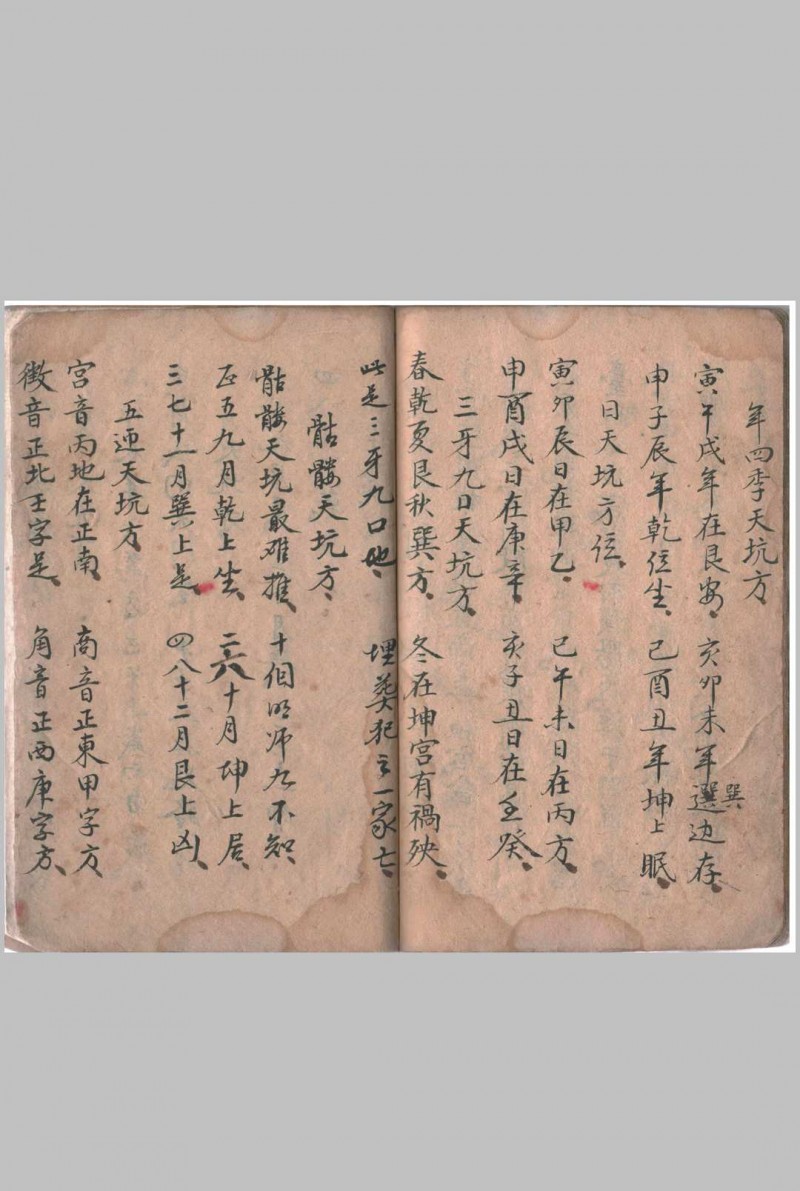 年四季天坑方
寅午戌年在艮安 亥卯未年選边存
巽
申子辰年乾位坐 己酉丑年坤上眠
日天坑方位
寅卯辰日在甲乙 己午未日在丙方
申酉戌日在庚辛 亥子丑日在壬癸
三牙九口天坑方
春乾夏艮秋巽方 冬在坤宫有禍殃
此是三牙九口地 埋葵犯之一家亡
骷髏天坑方
骷髏天坑最难推 十個明师九不知
正五九月乾上坐 二六十月坤上居
三七十一月巽上是 四八十二月艮上凶
五通天坑方
宫音丙地在正南 商音正東甲字方
徵音正北壬字是 角音正西庚字方